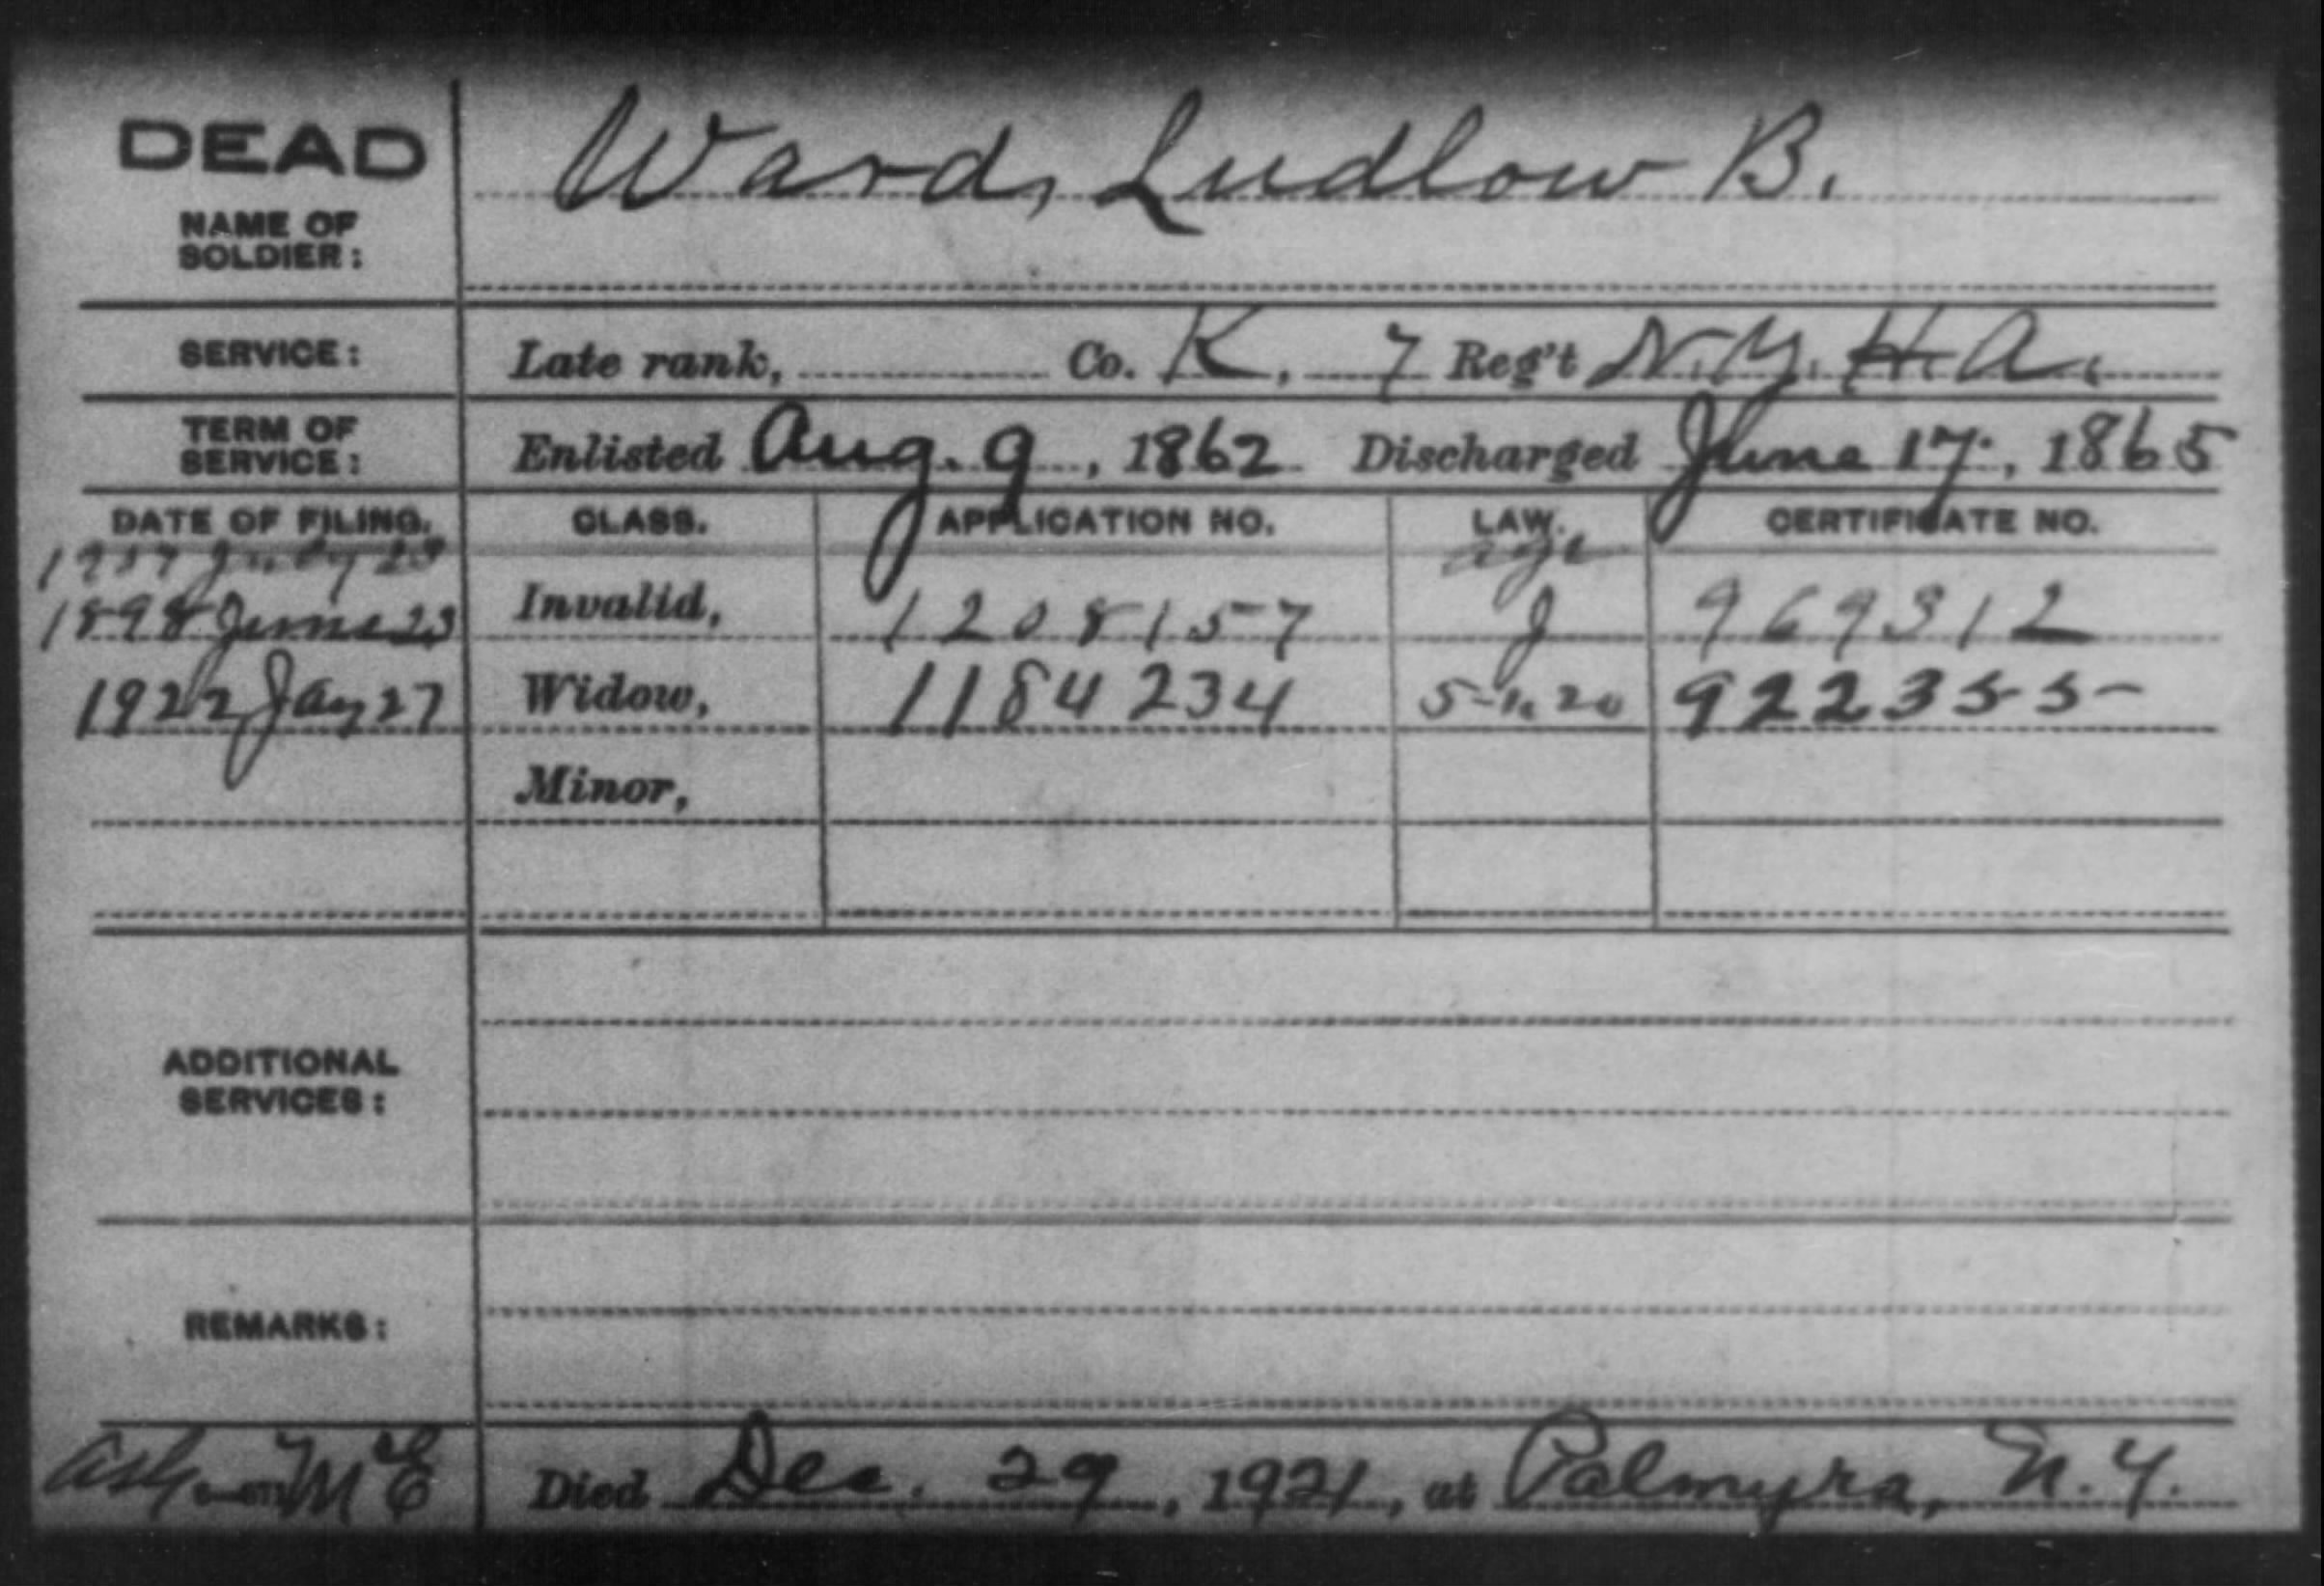 DEAD
Ward, Ludlow B.
NAME OF
SOLDIER:
SERVICE: Late rank, Co. K, 7 Reg't N.Y. H. A.
TERM OF
SERVICE: Enlisted Aug. 9, 1862 Discharged June 17, 1865
DATE OF FILING. CLASS. APPLICATION NO. LAW. CERTIFICATE NO.
age
1898 June 23 Invalid, 1208157 J 969312
1922 Jany 27 Widow, 1184234 922355
Minor,
ADDITIONAL
SERVICES:
REMARKS:
Died Dec. 29, 1921, at Palmyra, N.Y.